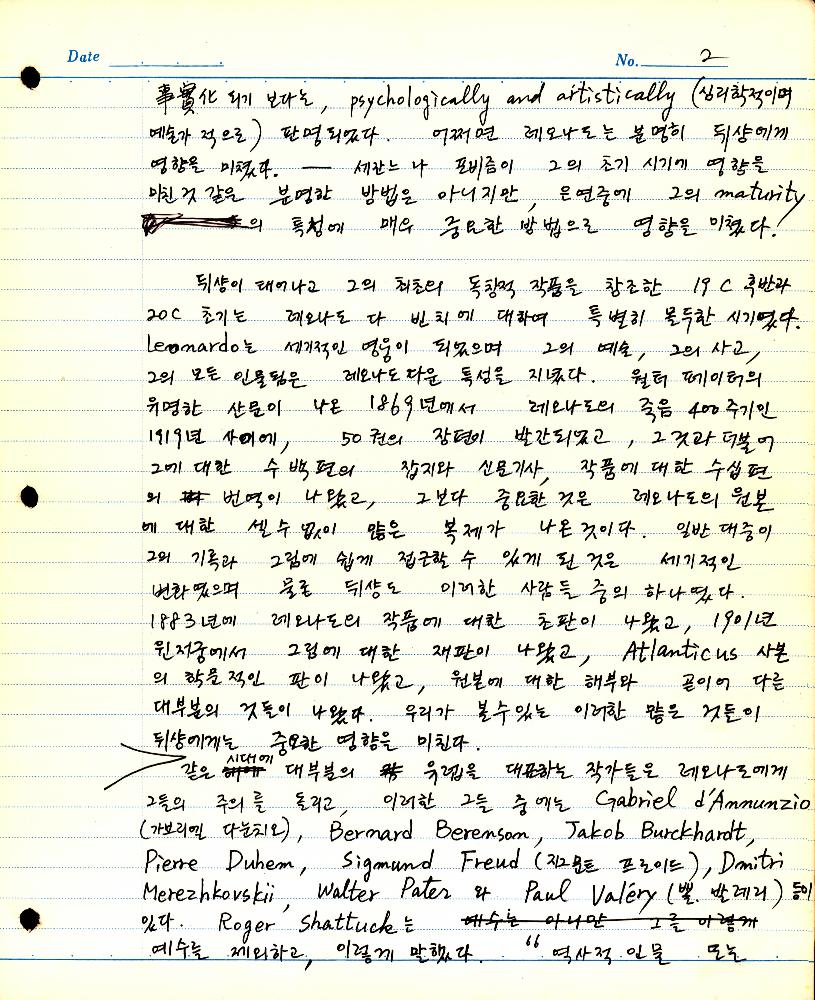 Date
No. 2
事實化 되기 보다는, psychologically and artistically (심리학적이며
예술가 적으로) 판명되었다. 어쩌면 레오나도는 분명히 뒤샹에게
영향을 미쳤다. — 세잔느나 포비즘이 그의 초기 시기에 영향을
미친것 같은 분명한 방법은 아니지만, 은연중에 그의 maturity
의 특성에 매우 중요한 방법으로 영향을 미쳤다!
뒤샹이 태어나고 그의 최초의 독창적 작품을 창조한 19C 후반과
20C 초기는 레오나도 다 빈치에 대하여 특별히 몰두한 시기였다.
Leonardo는 세기적인 영웅이 되었으며 그의 예술, 그의 사고,
그의 모든 인물됨은 레오나도다운 특성을 지녔다. 월터 페이터의
유명한 산문이 나온 1869년에서 레오나도의 죽음 400주기인
1919년 사이에, 50권의 장편이 발간되었고, 그것과 더불어
그에 대한 수백편의 잡지와 신문기사, 작품에 대한 수십편
의 번역이 나왔고, 그보다 중요한 것은 레오나도의 원본
에 대한 셀 수 없이 많은 복제가 나온것이다. 일반 대중이
그의 기록과 그림에 쉽게 접근할 수 있게 된 것은 세기적인
변화였으며 물론 뒤샹도 이러한 사람들 중의 하나였다.
1883년에 레오나도의 작품에 대한 초판이 나왔고, 1901년
원저궁에서 그림에 대한 재판이 나왔고, Atlanticus 사본
의 학문적인 판이 나왔고, 원본에 대한 해부와 곧이어 다른
대부분의 것들이 나왔다. 우리가 볼수있는 이러한 많은 것들이
뒤샹에게는 중요한 영향을 미친다.
같은 시대에 대부분의 유럽을 대표하는 작가들은 레오나도에게
그들의 주의를 돌리고, 이러한 그들 중에는 Gabriel d'Annunzio
(가브리엘 다눈치오), Bernard Berenson, Jakob Burckhardt,
Pierre Duhem, Sigmund Freud (지그문트 프로이드), Dmitri
Merezhkovskii, Walter Pater 와 Paul Valéry (뽈. 발레리) 등이
있다. Roger Shattuck는 예수는 아니만 그를 이렇게
예수를 제외하고, 이렇게 말했다. "역사적 인물 또는